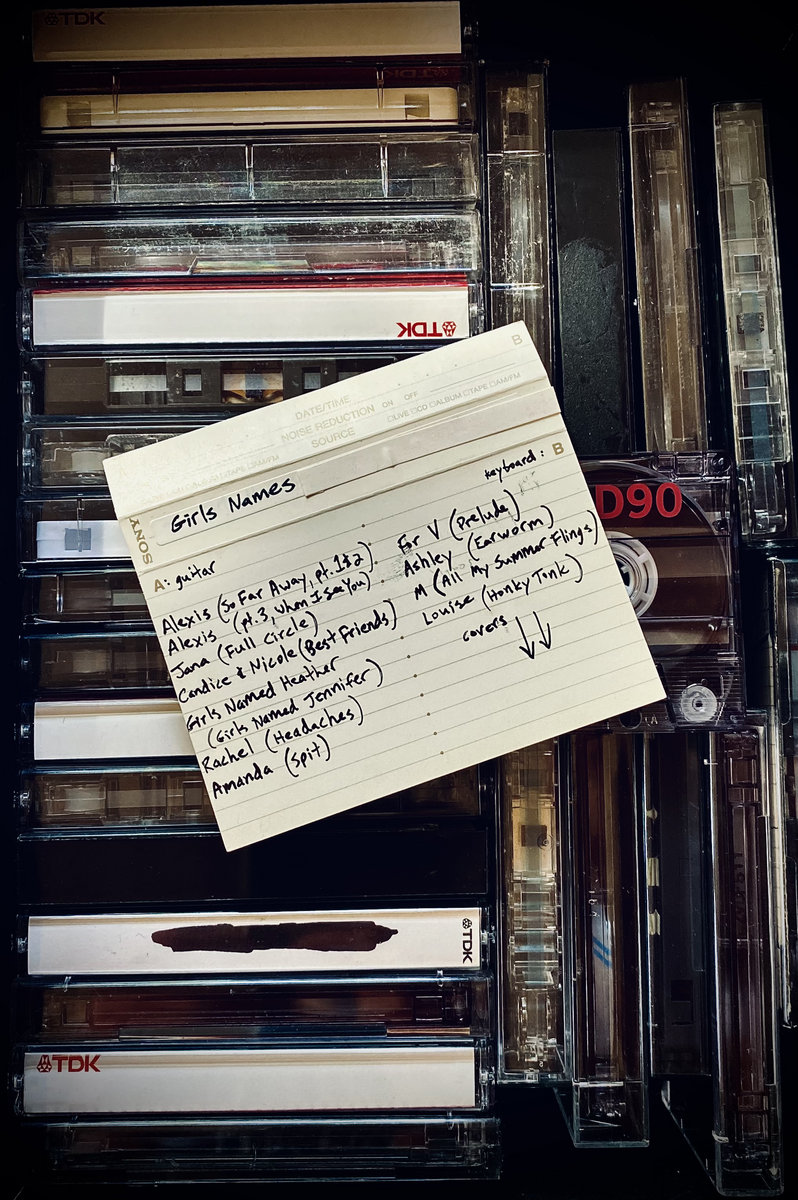 TDK
TDK
TDK
B
DATE/TIME
NOISE REDUCTION ON OFF
SOURCE □LIVE □CD □ALBUM □TAPE □AM/FM
□TAPE □AM/FM
SONY
Girls Names
B
keyboard:
A: guitar
Alexis (So Far Away, pt. 1&2)
Alexis (pt. 3, When I See You)
Jana (Full Circle)
Candice & Nicole (Best Friends)
Girls Named Heather
(Girls Named Jennifer)
Rachel (Headaches)
Amanda (Spit)
For V (Prelude)
Ashley (Earworm)
M (All My Summer Flings)
Louise (Honky Tonk)
covers
D90
TDK
TDK